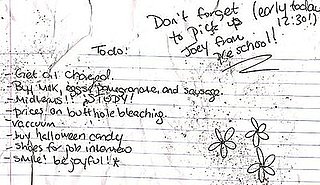 Don't forget (early today
to pick up 12:30!)
Joey from
preschool!!
Todo:
- Get oil changed.
- Buy milk, eggs, pomegranate, and sausage.
- Midterms!! STUDY!
- prices on butthole bleaching.
- vaccuum
- buy halloween candy
- shoes for job interview
- smile! be joyful! *